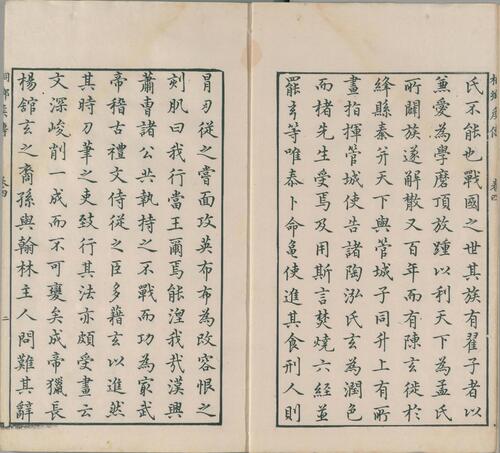 卷四
氏不能也戰國之世其族有翟子者以
兼愛為學磨頂放踵以利天下為孟氏
所闢族遂解散又百年而有陳玄徙於
絳縣秦并天下與管城子同升上有所
畫指揮管城使告諸陶泓氏玄為潤色
而楮先生受焉及用斯言焚燒六經並
罷玄等唯泰卜命龜使進其食刑人則
冒刃從之嘗面攻英布布為改容恨之
刻肌曰我行當王爾焉能涅我哉漢興
蕭曹諸公共執持之不戰而功為冣武
帝稽古禮文侍從之臣多藉玄以進然
其時刀筆之吏致行其法亦頗受畫云
文深峻削一成而不可變矣成帝獵長
楊舘玄之裔孫與翰林主人問難其辭
卷四
二